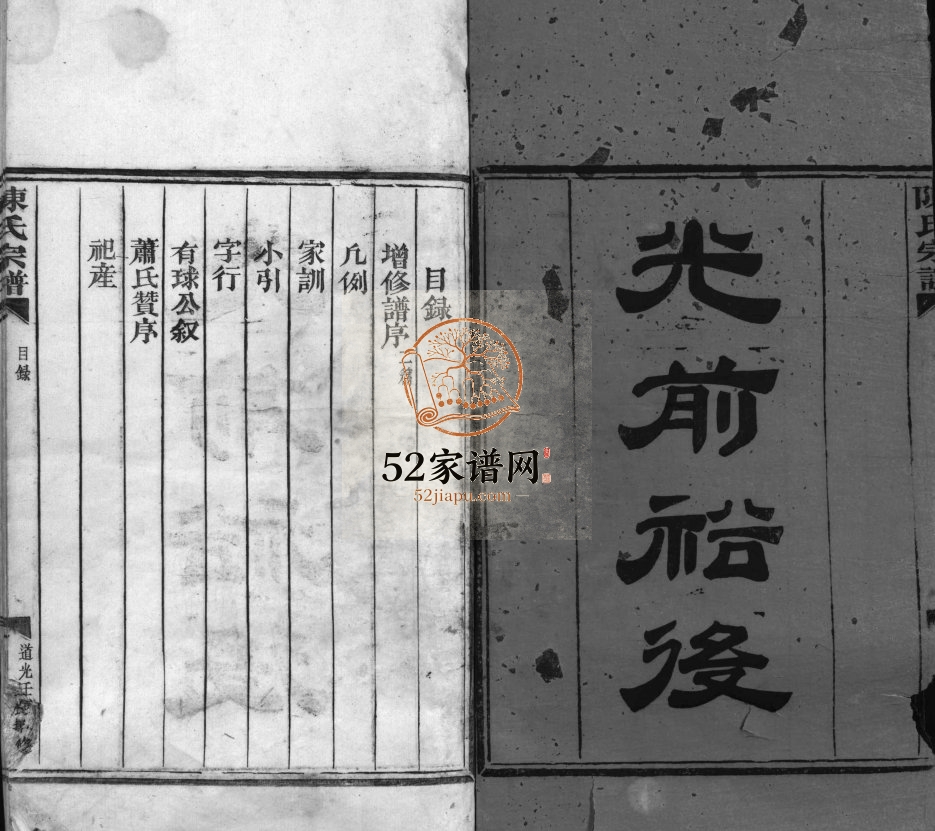 氏宗譜
光前裕後
目録
增修譜序
凢例
家訓
小引
字行
有球公叙
蕭氏贊序
祀産
氏宗譜
目録
道光壬
修
52家谱网
52jiapu.com